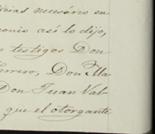 necesario en
así lo dijo,
testigos Don
Herrero, Don Ma
Don Juan Val
que el otorgante